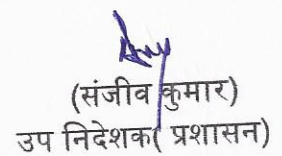 (संजीव कुमार)
उप निदेशक( प्रशासन)